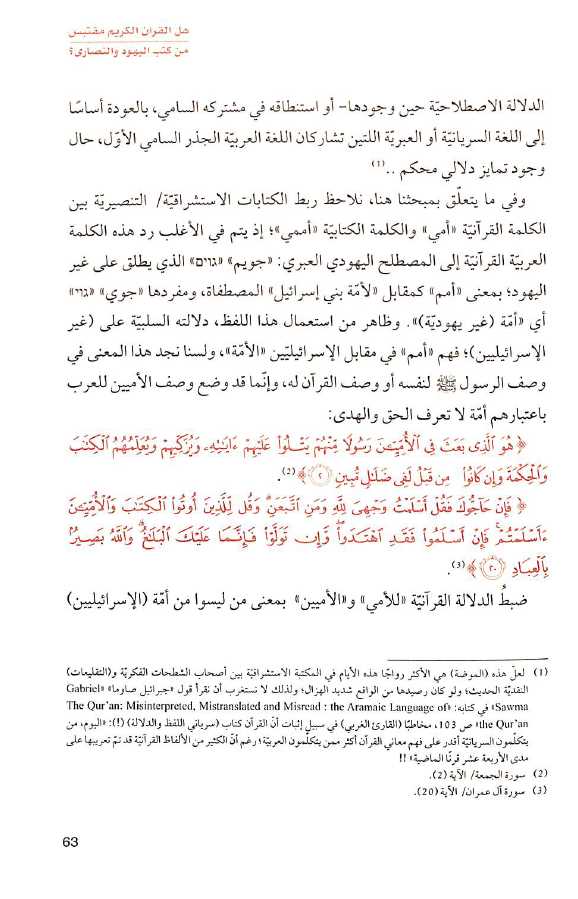 هل القرآن الكريم مقتبس
من كتب اليهود والنصارى؟
الدلالة الاصطلاحيّة حين وجودها- أو استنطاقه في مشتركه السامي، بالعودة أساسًا
إلى اللغة السريانيّة أو العبريّة اللتين تشاركان اللغة العربيّة الجذر السامي الأوّل، حال
وجود تمايز دلالي محكم ..(1)
وفي ما يتعلّق بمبحثنا هنا، نلاحظ ربط الكتابات الاستشراقيّة/ التنصيريّة بين
الكلمة القرآنيّة «أمي» والكلمة الكتابيّة «أممي»؛ إذ يتم في الأغلب رد هذه الكلمة
العربيّة القرآنيّة إلى المصطلح اليهودي العبري: «جويم» «גוים» الذي يطلق على غير
اليهود؛ بمعنى «أمم» كمقابل «لأمّة بني إسرائيل» المصطفاة، ومفردها «جوي» «גוי»
أي «أمّة (غير يهوديّة)». وظاهر من استعمال هذا اللفظ، دلالته السلبيّة على (غير
الإسرائيليين)؛ فهم «أمم» في مقابل الإسرائيليّين «الأمّة»، ولسنا نجد هذا المعنى في
وصف الرسول ﷺ لنفسه أو وصف القرآن له، وإنّما قد وضع وصف الأميين للعرب
باعتبارهم أمّة لا تعرف الحق والهدى:
﴿ هُوَ ٱلَّذِى بَعَثَ فِى ٱلْأُمِّيِّـۧنَ رَسُولًا مِّنْهُمْ يَتْلُوا۟ عَلَيْهِمْ ءَايَـٰتِهِۦ وَيُزَكِّيهِمْ وَيُعَلِّمُهُمُ ٱلْكِتَـٰبَ
وَٱلْحِكْمَةَ وَإِن كَانُوا۟ مِن قَبْلُ لَفِى ضَلَـٰلٍ مُّبِينٍ ٢ ﴾(2).
﴿ فَإِنْ حَآجُّوكَ فَقُلْ أَسْلَمْتُ وَجْهِىَ لِلَّهِ وَمَنِ ٱتَّبَعَنِ ۗ وَقُل لِّلَّذِينَ أُوتُوا۟ ٱلْكِتَـٰبَ وَٱلْأُمِّيِّـۧنَ
ءَأَسْلَمْتُمْ ۚ فَإِنْ أَسْلَمُوا۟ فَقَدِ ٱهْتَدَوا۟ ۖ وَّإِن تَوَلَّوْا۟ فَإِنَّمَا عَلَيْكَ ٱلْبَلَـٰغُ ۗ وَٱللَّهُ بَصِيرٌۢ
بِٱلْعِبَادِ ٢٠ ﴾(3).
ضبطُ الدلالة القرآنيّة «للأمي» و«الأميين» بمعنى من ليسوا من أمّة (الإسرائيليين)
(1) لعلّ هذه (الموضة) هي الأكثر رواجًا هذه الأيام في المكتبة الاستشراقيّة بين أصحاب الشطحات الفكريّة و(التقليعات)
النقديّة الحديث؛ ولو كان رصيدها من الواقع شديد الهزال؛ ولذلك لا تستغرب أن تقرأ قول «جبرائيل صاوما» «Gabriel
Sawma» في كتابه: «The Qur'an: Misinterpreted, Mistranslated and Misread : the Aramaic Language of
the Qur'an» ص 103، مخاطبًا (القارئ الغربي) في سبيل إثبات أنّ القرآن كتاب (سرياني اللفظ والدلالة) (!): «اليوم، من
يتكلّمون السريانيّة أقدر على فهم معاني القرآن أكثر ممن يتكلّمون العربيّة؛ رغم أنّ الكثير من الألفاظ القرآنيّة قد تمّ تعريبها على
مدى الأربعة عشر قرنًا الماضية» !!
(2) سورة الجمعة/ الآية (2).
(3) سورة آل عمران/ الآية (20).
63